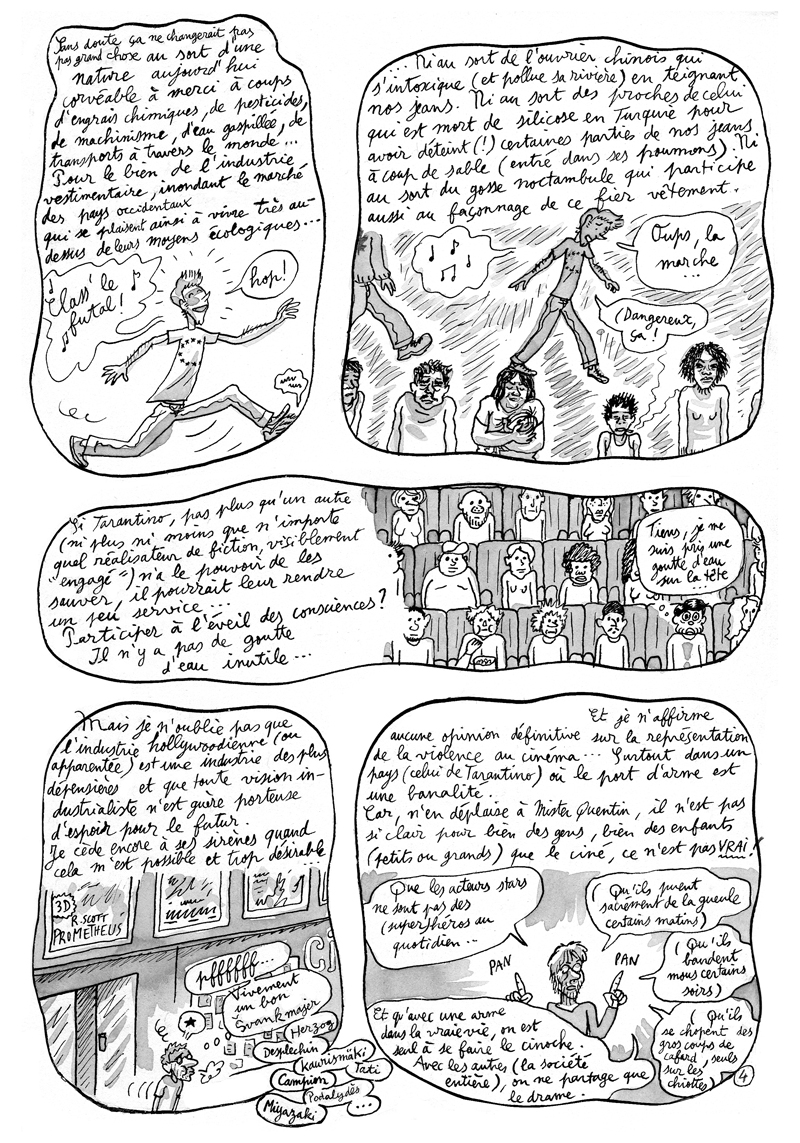 Sans doute, ça ne changerait pas
pas grand chose au sort d'une
nature aujourd'hui
corvéable à merci à coups
d'engrais chimiques, de pesticides,
de machinisme, d'eau gaspillée, de
transports à travers le monde...
Pour le bien de l'industrie
vestimentaire, inondant le marché
des pays occidentaux
qui se plaisent ainsi à vivre très au-
dessus de leurs moyens écologiques...
Class' le
futal!
hop!
... Ni au sort de l'ouvrier chinois qui
s'intoxique (et pollue sa rivière) en teignant
nos jeans. Ni au sort des proches de celui
qui est mort de silicose en Turquie pour
avoir déteint (!) certaines parties de nos jeans
à coup de sable (entré dans ses poumons). Ni
au sort du gosse noctambule qui participe
aussi au façonnage de ce fier vêtement.
Oups, la
marche
...
(Dangereux,
ça!
Si Tarantino, pas plus qu'un autre
(ni plus ni moins que n'importe
quel réalisateur de fiction, visiblement
"engagé") n'a le pouvoir de les
sauver, il pourrait leur rendre
un peu service...
Participer à l'éveil des consciences?
Il n'y a pas de goutte
d'eau inutile...
Tiens, je me
suis pris une
goutte d'eau
sur la tête
...
Mais je n'oublie pas que
l'industrie hollywoodienne (ou
apparentée) est une industrie des plus
dépensières et que toute vision in-
dustrialiste n'est guère porteuse
d'espoir pour le futur.
Je cède encore à ses sirènes quand
cela m'est possible et trop désirable
3D
R. SCOTT
PROMETHEUS
Ci
pffffff...
Vivement
un bon
Svankmajer
Herzog
Desplechin
Kaurismaki
Tati
Campion
Podalydès
Miyazaki
...
Et je n'affirme
aucune opinion définitive sur la représentation
de la violence au cinéma... Surtout dans un
pays (celui de Tarantino) où le port d'arme est
une banalité.
Car, n'en déplaise à Mister Quentin, il n'est pas
si clair pour bien des gens, bien des enfants
(petits ou grands) que le ciné, ce n'est pas VRAI!
Que les acteurs stars
ne sont pas des
(super)héros au
quotidien...
(Qu'ils puent
sacrément de la gueule
certains matins)
PAN
PAN
(Qu'ils
bandent
mous certains
soirs)
Et qu'avec une arme
dans la vraie vie, on est
seul à se faire le cinoche.
Avec les autres (la société
entière), on ne partage que
le drame.
(Qu'ils
se chopent des
gros coups de
cafard, seuls
sur les
chiottes)
4